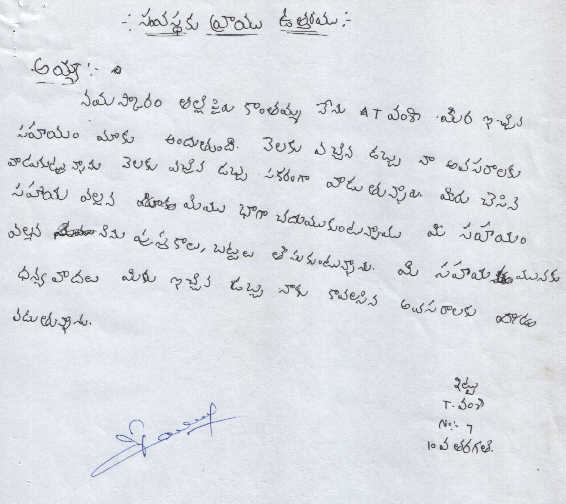 -: సంస్థకు వ్రాయు ఉత్తరము :-
అయ్యా :-
నమస్కారం తల్లిపేరు కాంతమ్మ నేను T వంశి మీరు ఇచ్చిన
సహయం మాకు అందుతుంది. నెలకు వచ్చిన డబ్బు నా అవసరాలకు
వాడుకుంటున్నాను నెలకు వచ్చిన డబ్బు సక్రంగా వాడుతున్నాం. మీరు చేసిన
సహాయ వల్లన మేము భాగా చదుముకుంటున్నాము మీ సహయం
వల్లన నేను పుస్తకాలు, బట్టలు తీసుకుంటున్నాను. మీ సహాయ మునకు
ధన్యవాదలు మీకు ఇచ్చిన డబ్బు నాకు కావలసిన అవసరాలకు
వడుతున్నాను.
ఇట్లు
T. వంశి
No:- 7
10 వ తరగతి.